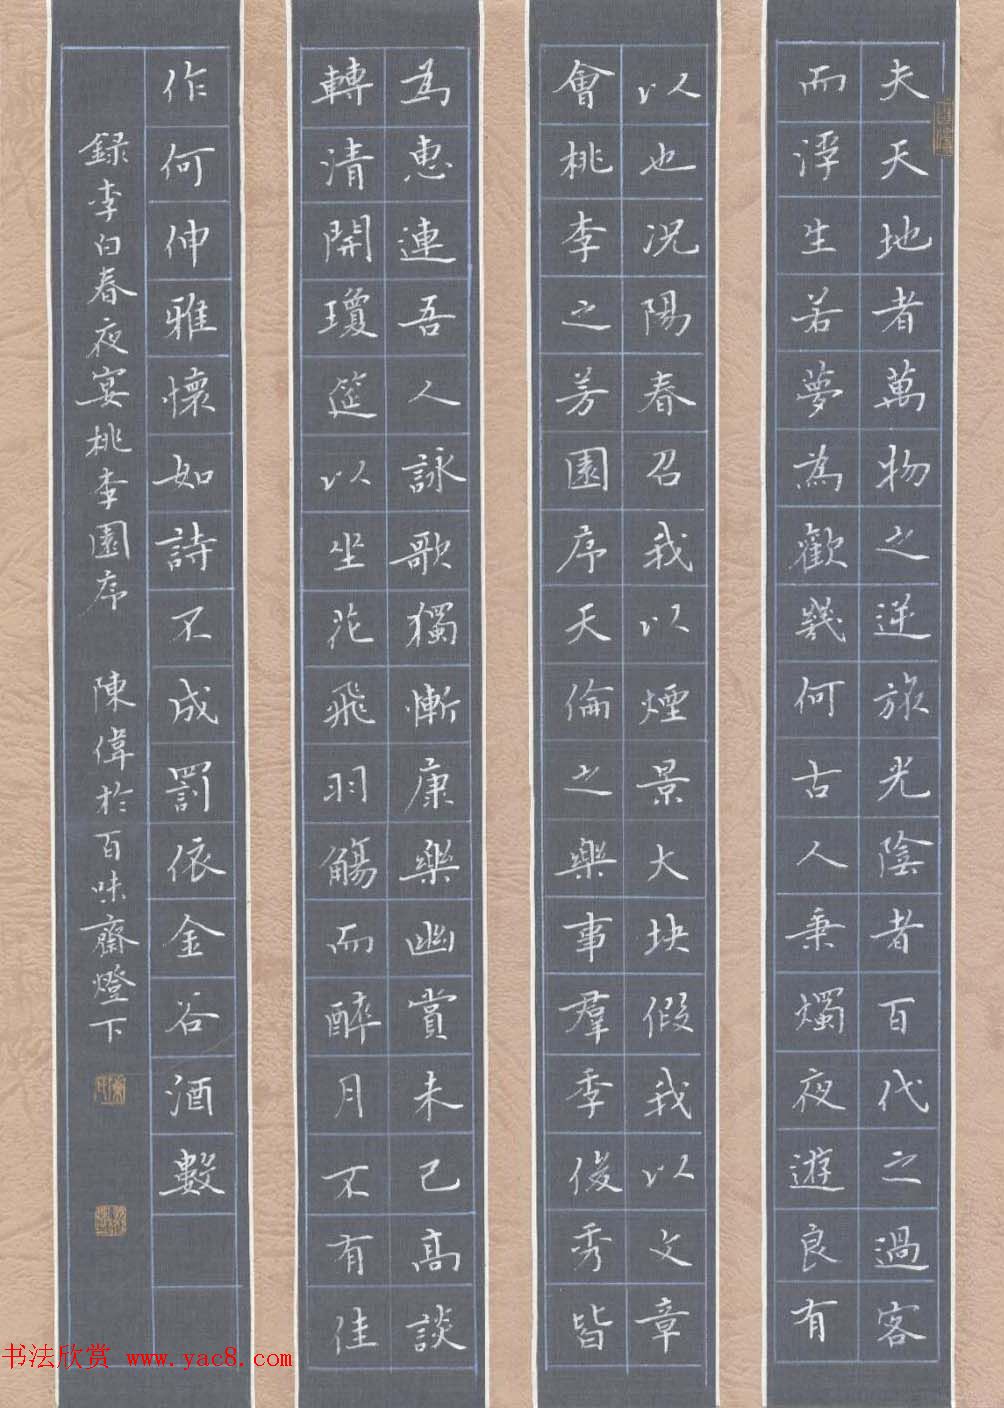 夫天地者萬物之逆旅光陰者百代之過客
而浮生若夢為歡幾何古人秉燭夜遊良有
以也况陽春召我以煙景大块假我以文章
會桃李之芳園序天倫之樂事羣季俊秀皆
為惠連吾人詠歌獨慚康樂幽賞未已高談
轉清開瓊筵以坐花飛羽觴而醉月不有佳
作何伸雅懷如詩不成罰依金谷酒數
録李白春夜宴桃李園序 陳偉於百味齋燈下
书法欣赏 www.yac8.com